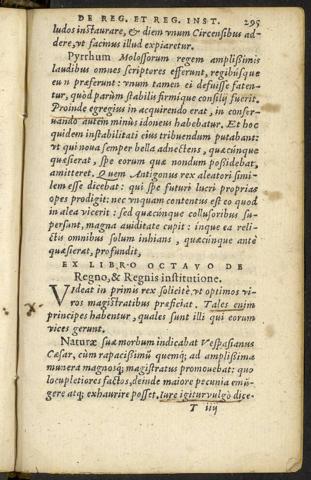 DE REG. ET REG. INST. 295
ludos instaurare, & diem vnum Circensibus ad-
dere, vt facinus illud expiaretur.
Pyrrhum Molossorum regem amplißimis
laudibus omnes scriptores efferunt, regibúsque
eu n præferunt: vnum tamen ei defuisse faten-
tur, quòd parùm stabilis firmíque consilij fuerit.
Proinde egregius in acquirendo erat, in conser-
uando autem minùs idoneus habebatur. Et hoc
quidem instabilitati eius tribuendum putabant:
vt qui noua semper bella adnectens, quæcúnque
quæsierat, spe eorum quæ nondum poßidebat,
amitteret. Quem Antigonus rex aleatori simi-
lem esse dicebat: qui spe futuri lucri proprias
opes prodigit: nec vnquam contentus est eo quod
in alea vicerit: sed quæcúnque collusoribus su-
persunt, magna auiditate cupit: inque ea reli-
ctis omnibus solum inhians, quæcunque antè
quæsierat, profundit,
EX LIBRO OCTAVO DE
Regno, & Regnis institutione.
Videat in primis rex solicitè, vt optimos vi-
ros magistratibus præficiat. Tales enim
principes habentur, quales sunt illi qui eorum
vices gerunt.
Naturæ suæ morbum indicabat Vespasianus
Cæsar, cùm rapacißimũ quemq; ad amplißima
munera magnosq; magistratus promouebat: quo
locupletiores factos, deinde maiore pecunia emũ-
gere atq; exhaurire posset. iure igitur vulgò dice-
T iiij